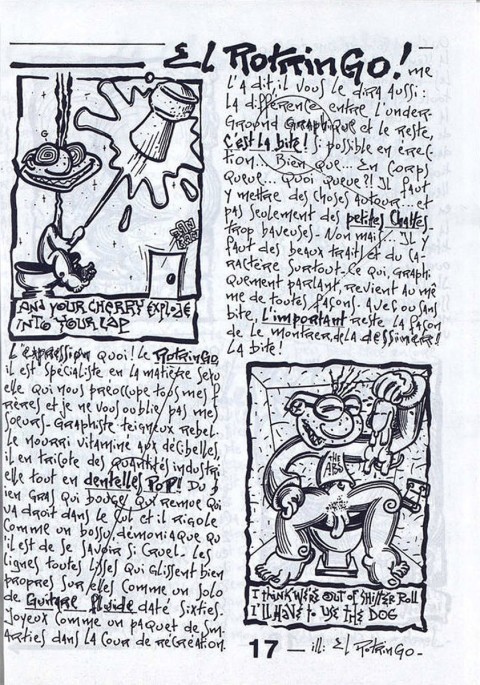 El RotrinGo!
L'expression quoi! le RotrinGo,
il est spécialiste en la matière sexu
elle qui nous préoccupe tous mes f
rères et je ne vous oublie pas mes
soeurs. Graphiste teigneux rebel.
Le nourri vitaminé aux décibelles,
il en tricote des quantités industri
elle tout en dentelles pop! Du b
ien gras qui bouge, qui remue qui
va droit dans le cul et il rigole
comme un bossu démoniaque qu
'il est de se savoir si cruel. Les
lignes toutes lisses qui glissent bien
propres sur elles comme un solo
de Guitare fluide daté sixties.
Joyeux comme un paquet de Sm
arties dans la cour de récréation.
me
l'a dit, il vous le dira aussi:
La différence entre l'under-
Ground Graphique et le reste,
C'est la bite! Si possible en érec-
tion... Bien que... En corps
queue... Quoi queue?! Il faut
y mettre des choses autour... et
pas seulement des petites Chattes
trop baveuses. Non mais... Il y
faut des beaux traits et du ca-
ractère surtout. Ce qui, graphi
quement parlant, revient au mê
me de toutes façons. Avec ou sans
bite, L'important reste la façon
de le montrer, de la dessiner!
La bite!
AND YOUR CHERRY EXPLODE
INTO YOUR LAP
THE
ABO
I THINK WE'RE OUT OF SHITTER ROLL
I'LL HAVE TO USE THE DOG
17 - ill: El RotrinGo -